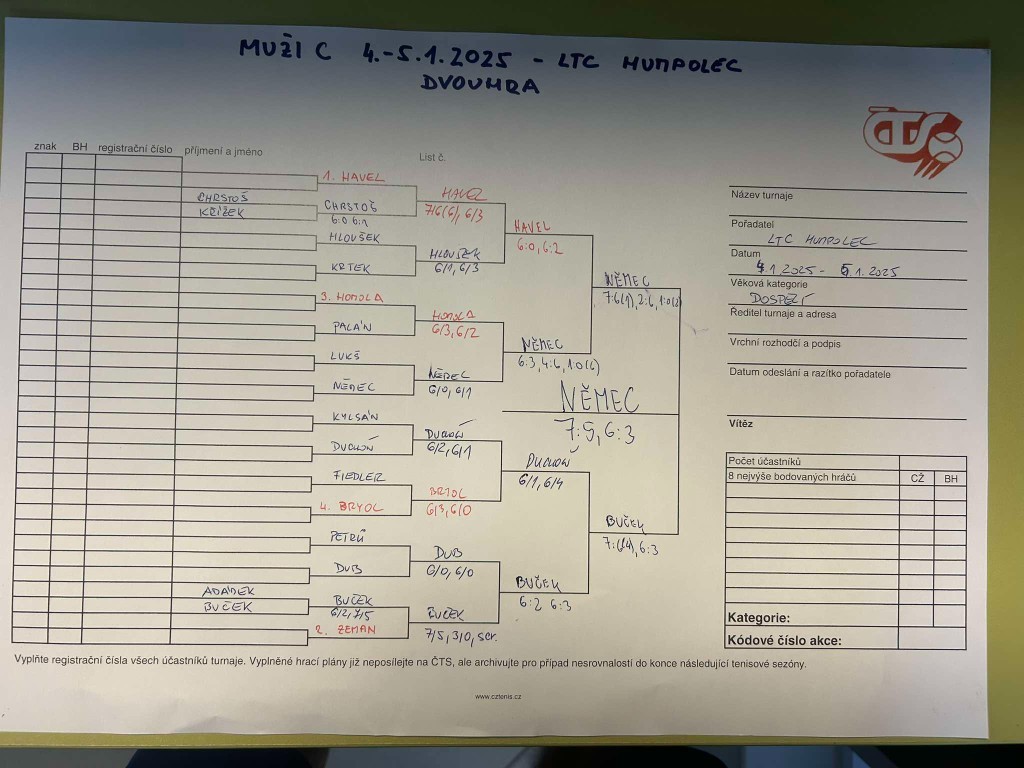 MUŽI C 4.-5.1.2025 - LTC HUMPOLEC
DVOUHRA
ČTS
znak BH registrační číslo příjmení a jméno
List č.
1. HAVEL
CHRSTOŠ
KŘÍŽEK
CHRSTOŠ
6:0 6:1
HAVEL
7/6(6), 6/3
HLOUŠEK
KRTEK
HLOUŠEK
6/1, 6/3
HAVEL
6:0, 6:2
3. HOMOLA
PALÁN
HOMOLA
6/3, 6/2
LUKŠ
NĚMEC
NĚMEC
6/0, 6/1
NĚMEC
6:3, 4:6, 1:0(6)
NĚMEC
7:6(1), 2:6, 1:0(2)
NĚMEC
7:5, 6:3
KYLSÁN
DUCHOŇ
DUCHOŇ
6/2, 6/1
FIEDLER
4. BRYOL
BRYOL
6/3, 6/0
DUCHOŇ
6/1, 6/4
PETRŮ
DUB
DUB
6/0, 6/0
ADÁMEK
BUČEK
BUČEK
6/2, 7/5
2. ZEMAN
BUČEK
7/5, 3/0, scr.
BUČEK
6:2 6:3
BUČEK
6:3
Název turnaje
Pořadatel
LTC HUMPOLEC
Datum
4.1.2025 - 5.1.2025
Věková kategorie
DOSPĚLÍ
Ředitel turnaje a adresa
Vrchní rozhodčí a podpis
Datum odeslání a razítko pořadatele
Vítěz
Počet účastníků
8 nejvýše bodovaných hráčů CŽ BH
Kategorie:
Kódové číslo akce:
Vyplňte registrační čísla všech účastníků turnaje. Vyplněné hrací plány již neposílejte na ČTS, ale archivujte pro případ nesrovnalostí do konce následující tenisové sezóny.
www.cztenis.cz